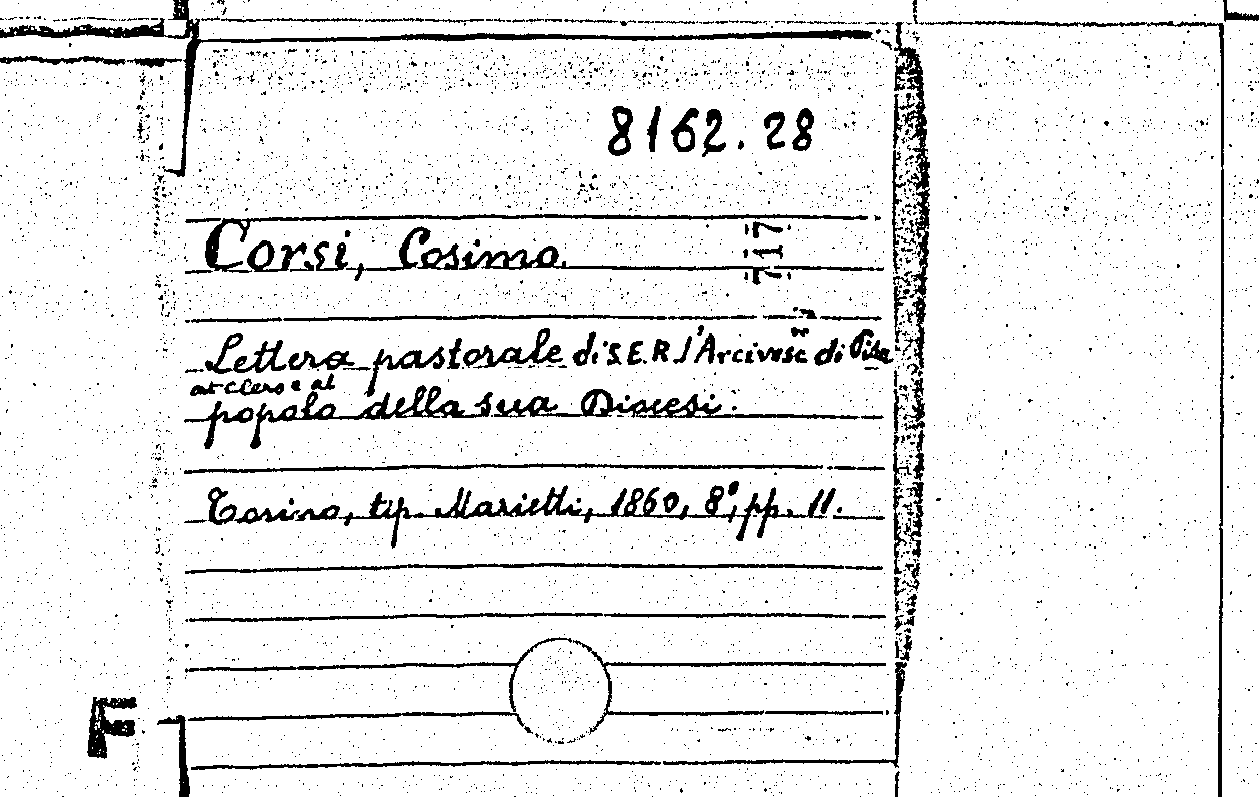 8162.28
Corsi, Cosimo.
717
Lettera pastorale di S.E.R l'Arcivesc di Pisa
al clero e al
popolo della sua Diocesi.
Torino, tip. Marietti, 1860, 8°, pp. 11.